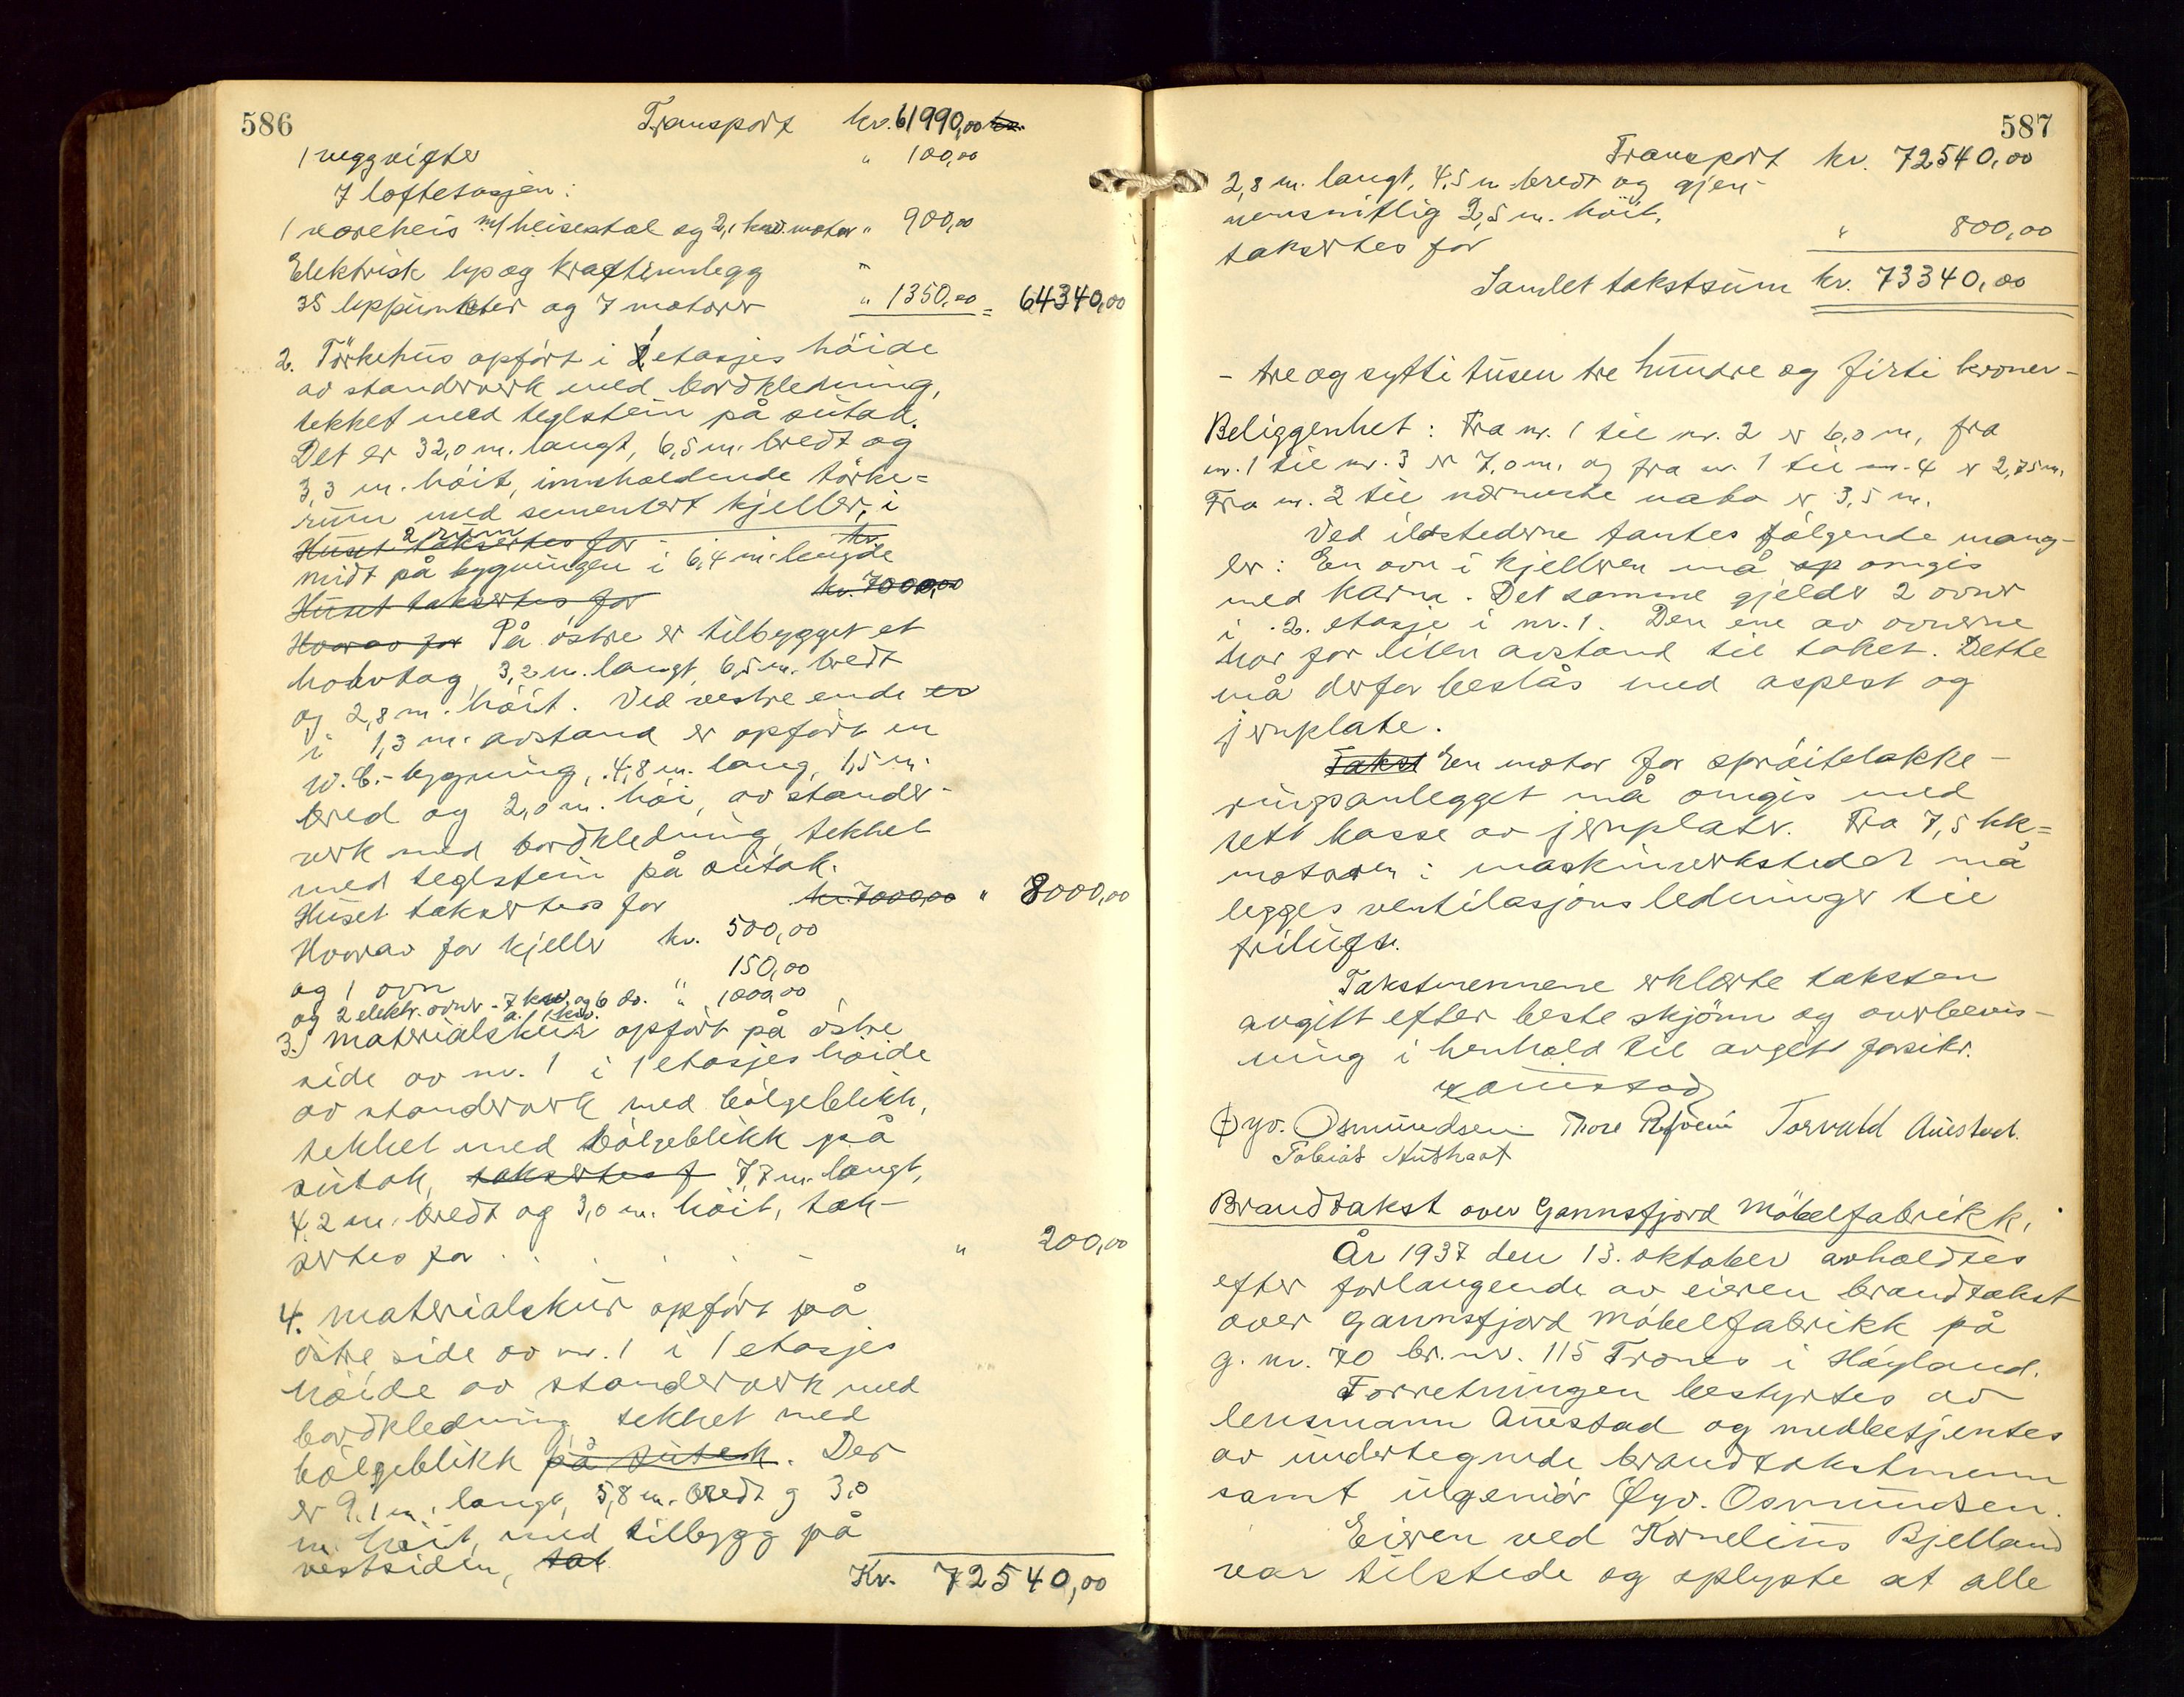 586
Transport kr. 61990,00 kr.
1 veggvifte " 100,00
7 loftetasjen:
1 vareheis m/ heisestol og 2,1 kw. motor " 900,00
Elektrisk lys og kraftinnlegg "
35 lyspunkter og 7 motorer " 1350,00 = 64340,00
2. Törkehus opfört i 1 etasjes höide
av standerverk med bordkledning,
tekket med teglstein på sutak.
Det er 32,0 m. langt, 6,5 m. bredt og
3,3 m. höit, inneholdende törke=
rum med sementert kjeller, i
2 rum
Huset taksertes for kr.
midt på bygningen i 6,4 m. lengde
Huset taksertes for kr. 7000,00
Hvorav for På östre er tilbygget et
halvtag 3,2 m. langt, 6,5 m. bredt
og 2,8 m. höit. Ved vestre ende er
i 1,3 m. avstand er opfört en
W.C.-bygning, 4,8 m. lang, 1,5 m.
bred og 2,0 m. höi, av stander-
verk med bordkledning, tekket
med teglstein på sutak.
Huset taksertes for kr. 7000,00 " 8000,00
Hvorav for kjeller kr. 500,00
og 1 ovn 150,00
og 2 elektr. ovner - 7 kw. og 6 do. " 1000,00
a. 1 kw.
3. Materialskur opfört på östre
side av nr. 1 i 1 etasjes höide
av standerverk med bölgeblikk,
tekket med bölgeblikk på
sutak, taksertes f 7,7 m. langt,
4,2 m. bredt og 3,0 m. höit, tak-
sertes for . . . . - " 200,00
4. Materialskur opfört på
östre side av nr. 1 i 1 etasjes
höide av standerverk med
bordkledning, tekket med
bölgeblikk på sutak. Det
er 9,1 m. langt, 5,8 m. bredt g 3,0
m. höit, med tilbygg på
vestsiden, tak
Kr. 72540,00
587
Transport kr. 72540,00
2,8 m. langt, 4,5 m bredt og gjen-
nemsnitlig 2,5 m. höit,
taksertes for " 800,00
Samlet takstsum kr. 73340,00
- tre og sytti tusen tre hundre og firti kroner -
Beliggenhet: Fra nr. 1 til nr. 2 er 6,0 m, fra
nr. 1 til nr. 3 er 7,0 m. og fra nr. 1 til nr. 4 er 2,75 m.
Fra nr. 2 til nærmeste nabo er 3,5 m.
Ved ildstederne fantes fölgende mang-
ler: En ovn i kjelleren må op omgis
med karm. Det samme gjelder 2 ovner
i 2. etasje i nr. 1. Den ene av ovnerne
har for liten avstand til taket. Dette
må derfor beslås med aspest og
jernplate.
Takst En motor for spröitelakke-
ringsanlegget må omgis med
tett kasse av jernplater. Fra 7,5 hk=
motoren i maskinverkstedet må
legges ventilasjonsledninger til
friluft.
Takstmennene erklærte taksten
avgitt efter beste skjönn og overbevis-
ning i henhold til avgitt forsikr.
Auestad
Øyv. Osmundsen Thore Torvald Auestad.
Tobias
Brandtakst over Gannsfjord Möbelfabrikk.
År 1937 den 13. oktober avholdtes
efter forlangende av eieren brandtakst
over Gannsfjord Möbelfabrikk på
g. nr. 70 br. nr. 115 Trones i Höyland.
Forretningen bestyrtes av
lensmann Auestad og medbetjentes
av undertegnede brandtakstmenn
samt ingeniör Øyv. Osmundsen.
Eieren ved Kornelius Bjelland
var tilstede og oplyste at alle